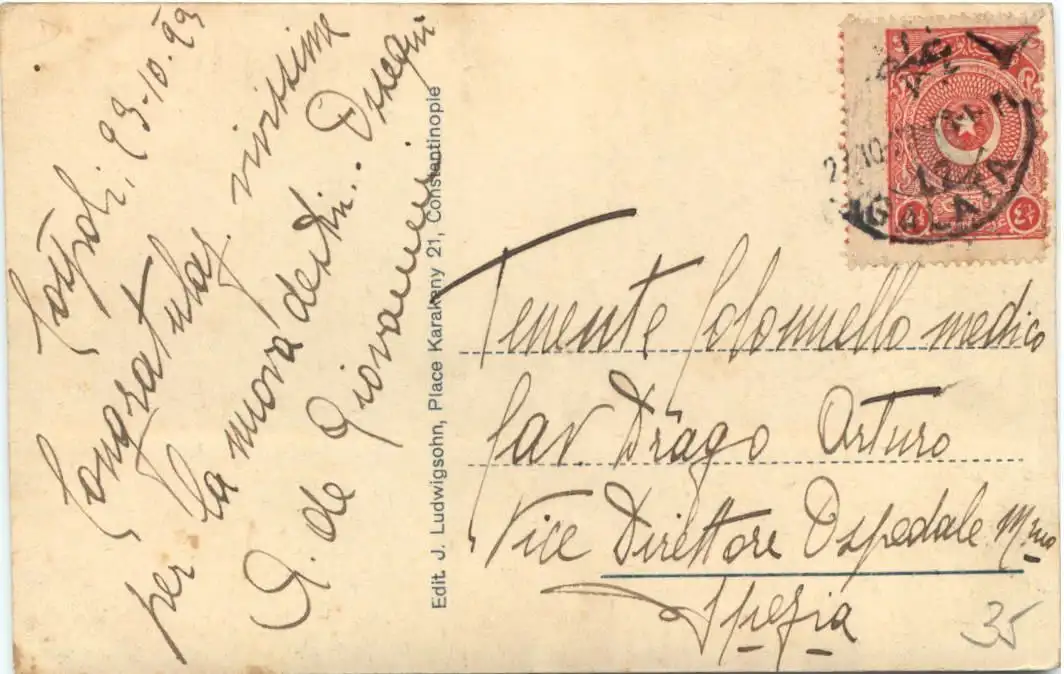 Costpoli, 23-10-23
Congratulaz. vivissime
per la nuova destin.. Ossequi
de Giovanni
Edit. J. Ludwigsohn, Place Karakeny 21, Constantinople
GALATA
Tenente Colonnello medico
Cav. Drago Arturo
Vice Direttore Ospedale M.mo
Spezia
35